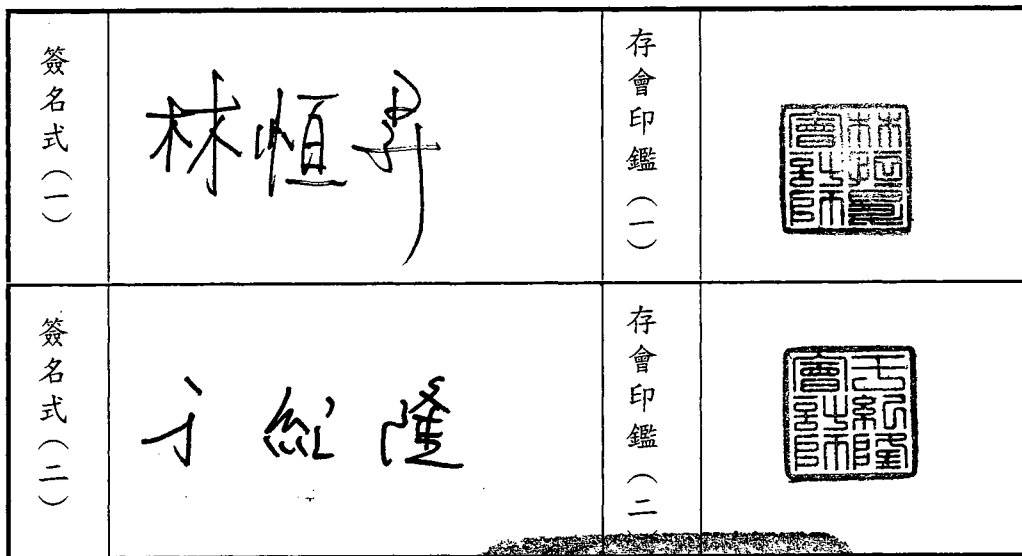 簽名式（一）
林恒昇
存會印鑑（一）
林恒昇
會計師
簽名式（二）
于紀隆
存會印鑑（二）
于紀隆
會計師